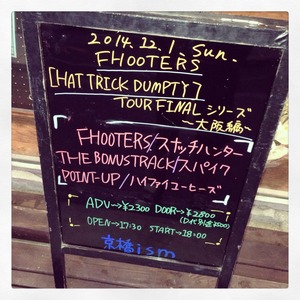 2014.12.1.sun.
FHOOTERS
[HAT TRICK DUMPTY]
TOUR FINAL シリーズ
〜大阪編〜
FHOOTERS/スナッチハンター
THE BONUSTRACK/スパイク
POINT-UP/ハイファイコーヒーズ
ADV→¥2300 DOOR→¥2800
(D代別途¥500)
OPEN→17:30 START→18:00
京橋ism